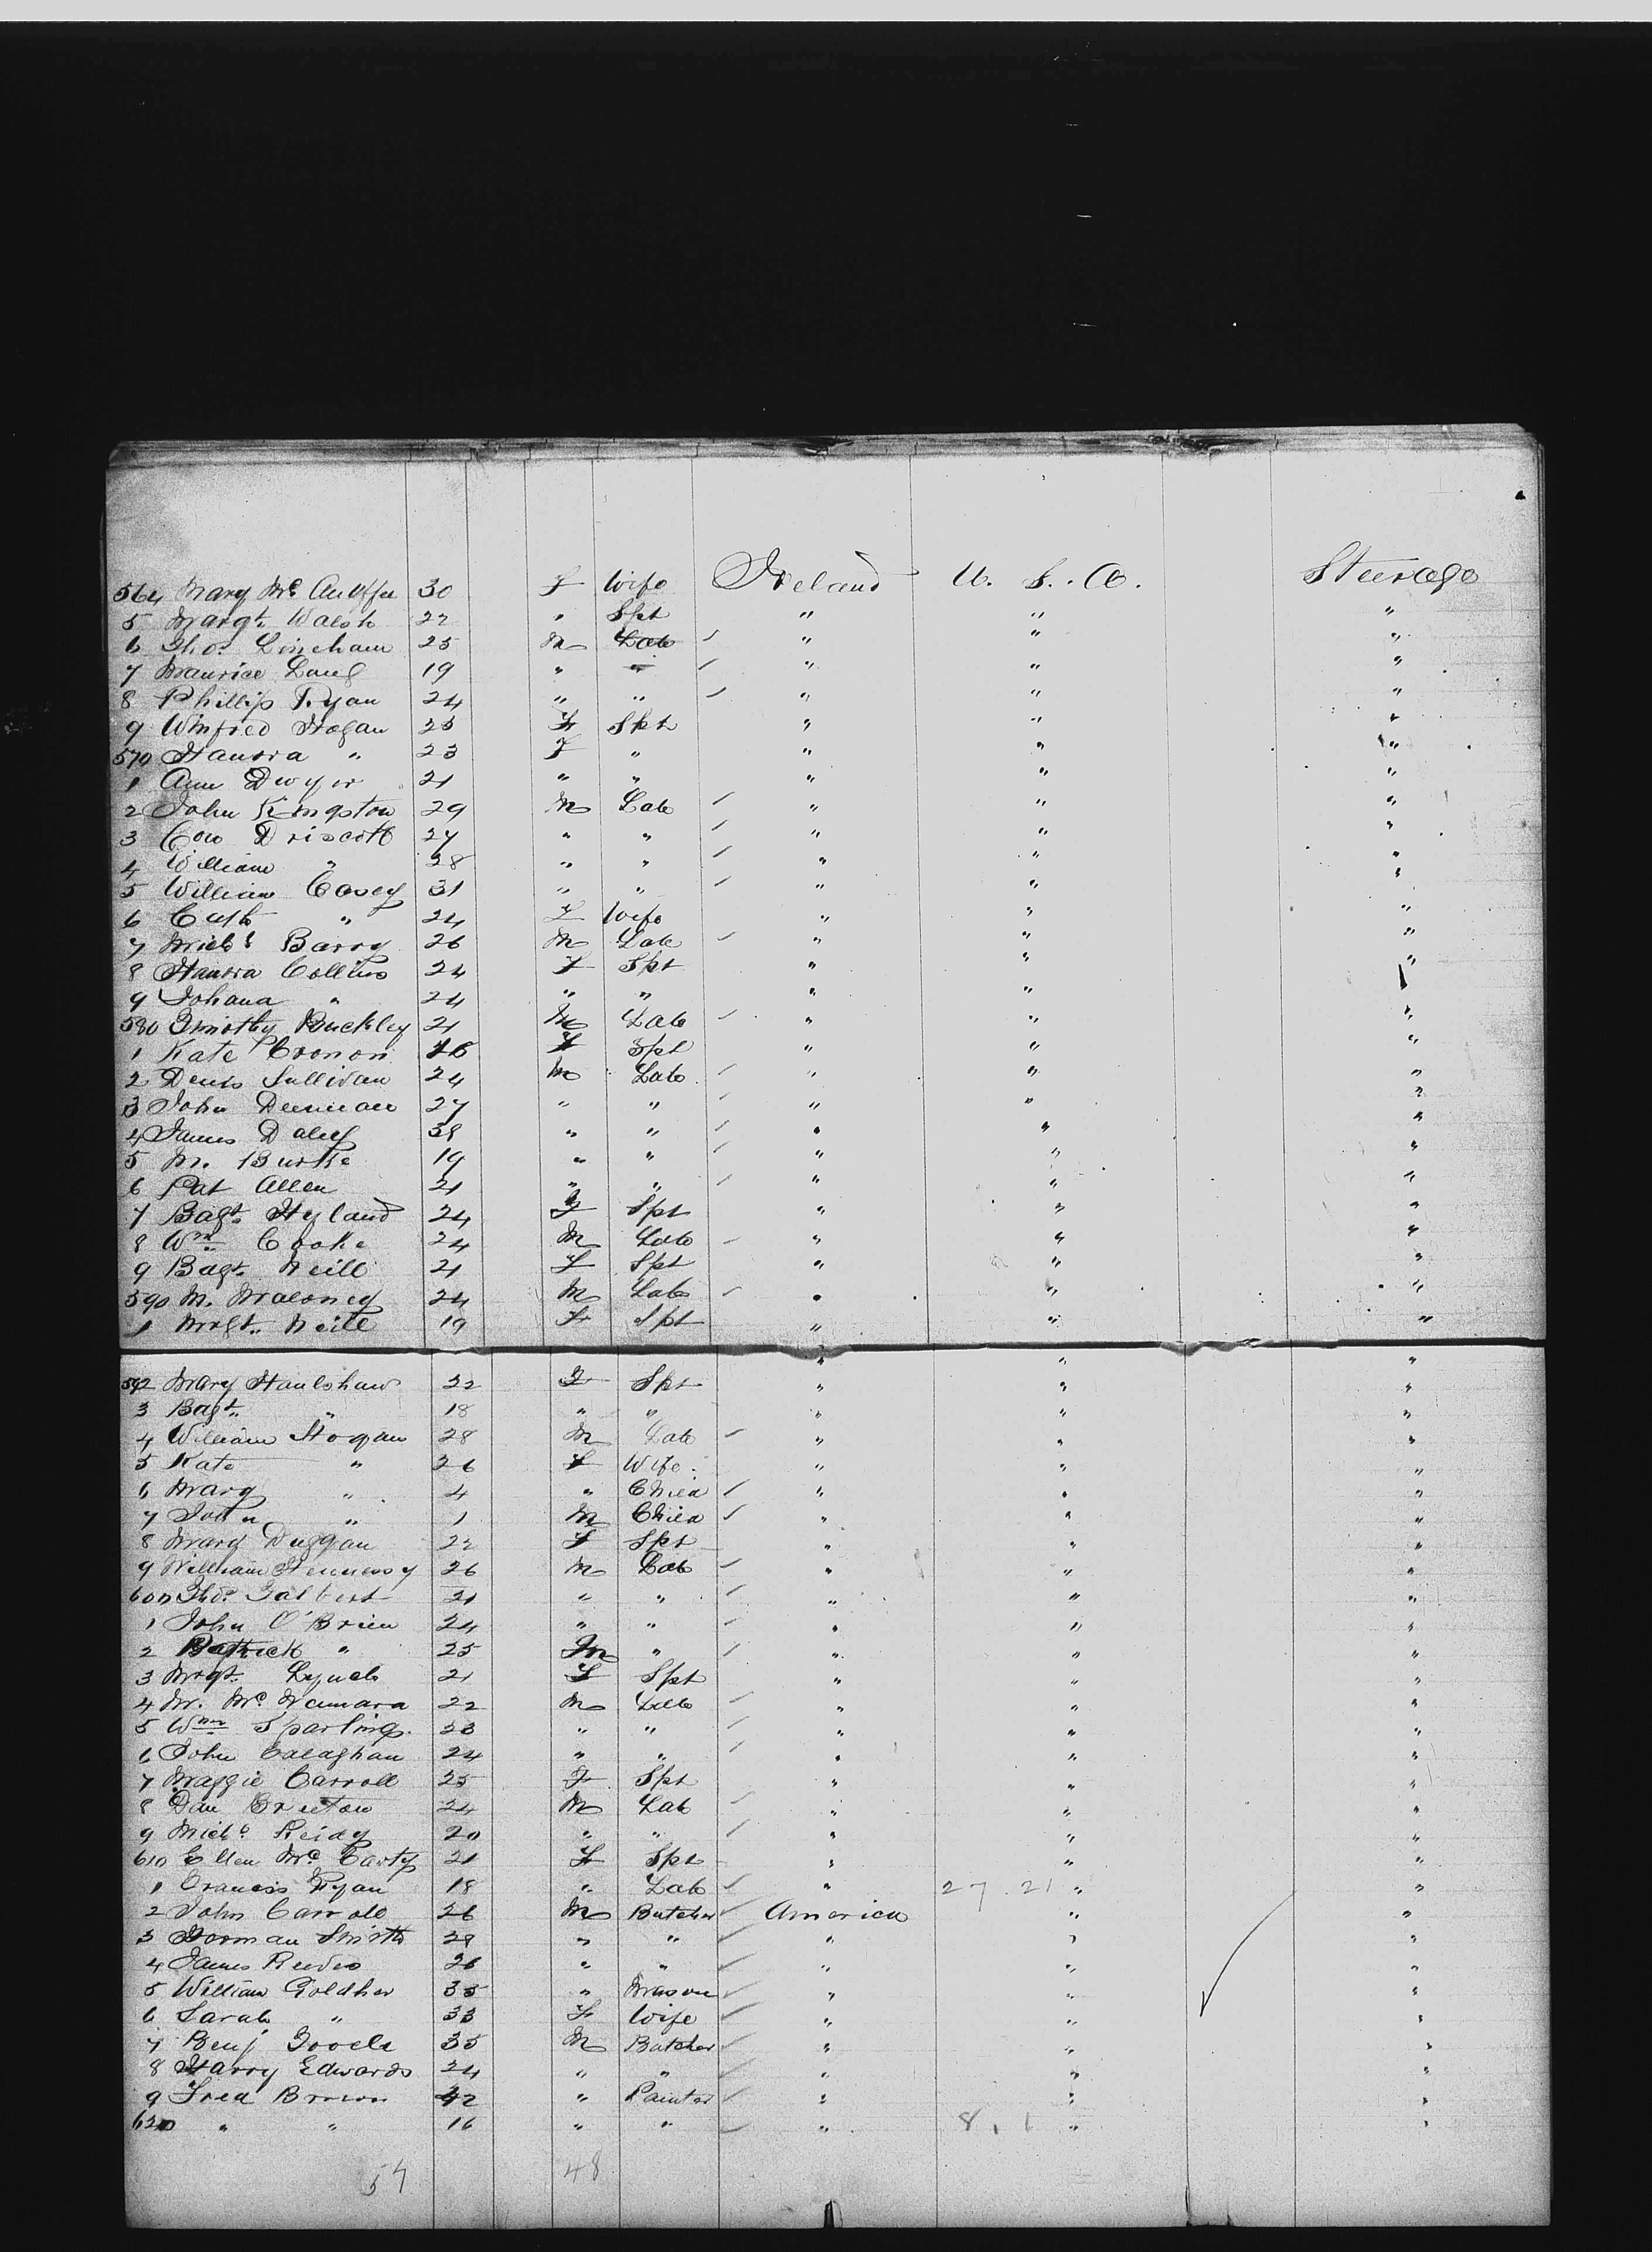 564 Mary Mc 30 F Wife Ireland U. S. A. Steerage
5 Margt. Walsh 22 " Spt " " "
6 Tho. Lineham 25 M Lab " " "
7 Maurice Lang 19 " " " " "
8 Phillip Ryan 24 " " " " "
9 Winfred Hogan 25 F Spt " " "
570 Hanora " 23 F " " " "
1 Ann Dwyer 21 " " " " "
2 John Kingston 29 M Lab " " "
3 Con Driscoll 27 " " " " "
4 William " 28 " " " " "
5 William Casey 31 " " " " "
6 Cath " 24 F Wife " " "
7 Michl Barry 26 M Lab " " "
8 Hanora Collins 24 F Spt " "
9 Johana " 24 " " " "
580 Timothy Buckley 21 M Lab " " "
1 Kate Cronon F Spt " " "
2 Denis Sullivan 24 M Lab " " "
3 John 27 " " " " "
4 James Daley 38 " " " " "
5 M. Burke 19 " " " " "
6 Pat Allen 21 " " " " "
7 Bagt. Hyland 24 F Spt " " "
8 Wm Cooke 24 M Lab " " "
9 Bagt. Neill 21 F Spt " " "
590 M. Maloney 24 M Lab " " "
1 Mrgt. Neill 19 F Spt " " "
" " "
592 Mary Hanlshaw 22 F Spt " " "
3 Bagt. " 18 " " " " "
4 William Hogan 28 M Lab " " "
5 Kate " 26 F Wife " " "
6 Mary " 4 " Child " " "
7 John " 1 M Child " " "
8 Mary Duggan 22 F Spt " " "
9 William Hennessy 26 M Lab " " "
600 Tho. Talbert 21 " " " " "
1 John O'Brien 24 " " " " "
2 Patrick " 25 M " " " "
3 Mrgt. Lynch 21 F Spt " " "
4 M. McNamara 22 M Lab " " "
5 Wm Sparling 23 " " " " "
6 John Calaghan 24 " " " " "
7 Maggie Carroll 25 F Spt " " "
8 Dan 24 M Lab " " "
9 Michl Reidy 20 " " " " "
610 Ellen McCarty 21 F Spt " " "
1 Francis Ryan 18 " Lab " 27 21 " "
2 John Carroll 26 M Butcher America " "
3 Norman Smith 29 " " " " "
4 James Reeves 26 " " " " "
5 William Goldher 35 " Mason " " "
6 Sarah " 33 F Wife " " "
7 Benj 35 M Butcher " " "
8 Harry Edwards 24 " " " " "
9 Fred Brown 42 " Painter " " "
620 " " 16 " " " 8, 1 " "
57 48